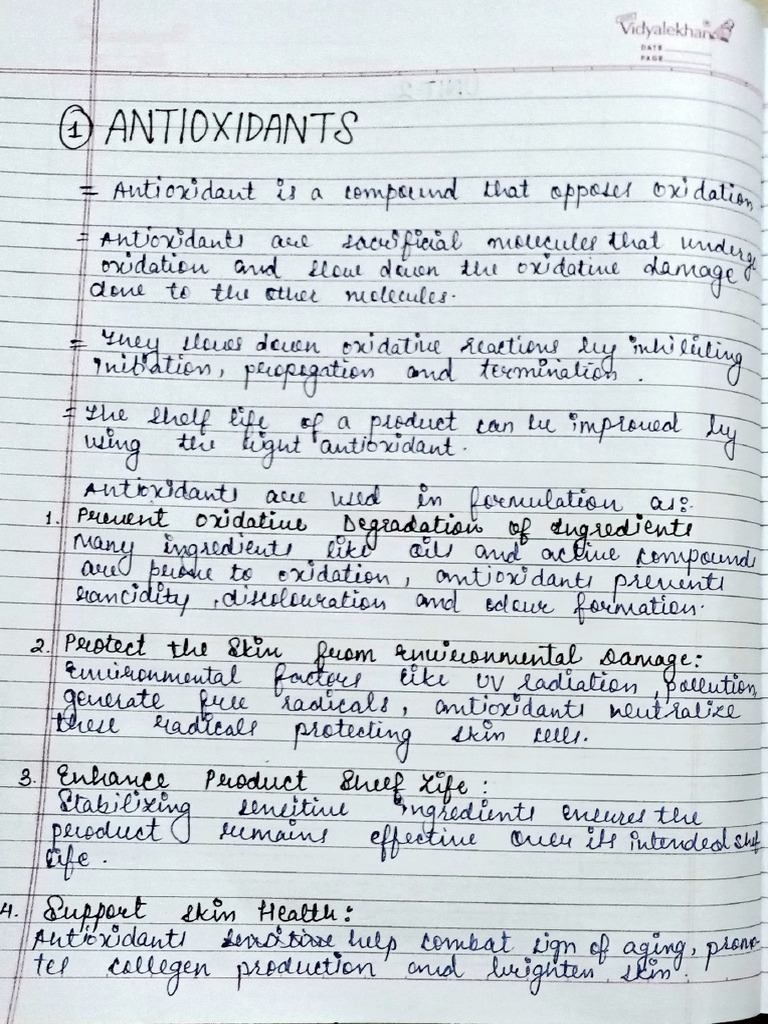 Vidyalekhan
DATE
PAGE
① ANTIOXIDANTS
= Antioxidant is a compound that opposes oxidation
= Antioxidants are sacrificial molecules that undergo
oxidation and slow down the oxidative damage
done to the other molecules.
= They slows down oxidative reactions by inhibiting
initiation, propogation and termination.
= The shelf life of a product can be improved by
using the right antioxidant.
Antioxidants are used in formulation as:-
1. Prevent Oxidative Degradation of Ingredients
Many ingredients like oils and active compounds
are prone to oxidation, antioxidants prevents
rancidity, discolouration and odour formation.
2. Protect the Skin from environmental Damage:
Environmental factors like UV radiation, pollution,
generate free radicals, antioxidants neutralize
these radicals protecting skin cells.
3. Enhance Product Shelf Life:
Stabilizing sensitive ingredients ensures the
product remains effective over its intended shelf
life.
4. Support skin Health:
Antioxidants sensitive help combat sign of aging, promo-
tes collagen production and brighten skin.